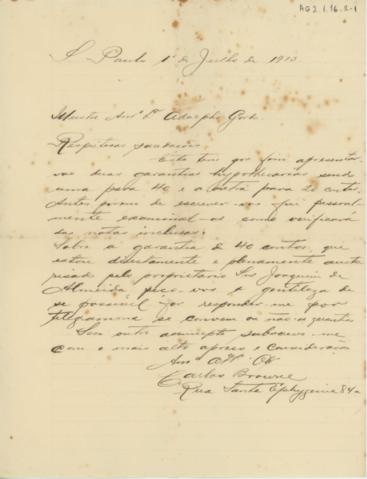 AG2.1.16.2-1
S. Paulo 1º de Julho de 1913
Illustre Amº Dr Adolpho Gordo
Respeitosas saudações
Esta tem por fim apresentar
vos duas garantias hypothecarias sendo
uma para 40 e a outra para 20 contos.
Antes porem de escrever-vos fui pessoal-
mente examinal-as como verificará
das notas inclusas.
Sobre a garantia de 40 contos, que
estou directamente e plenamente auto
risado pelo proprietario Snr Joaquim de
Almeida peço-vos a gentileza de
se possivel for responder-me por
telegramma se convem ou não a garantia
Sem outro assumpto subscrevo-me
com o mais alto apreço e consideração
Amº
Carlos Browne
Rua Santa Ephygenia 84a